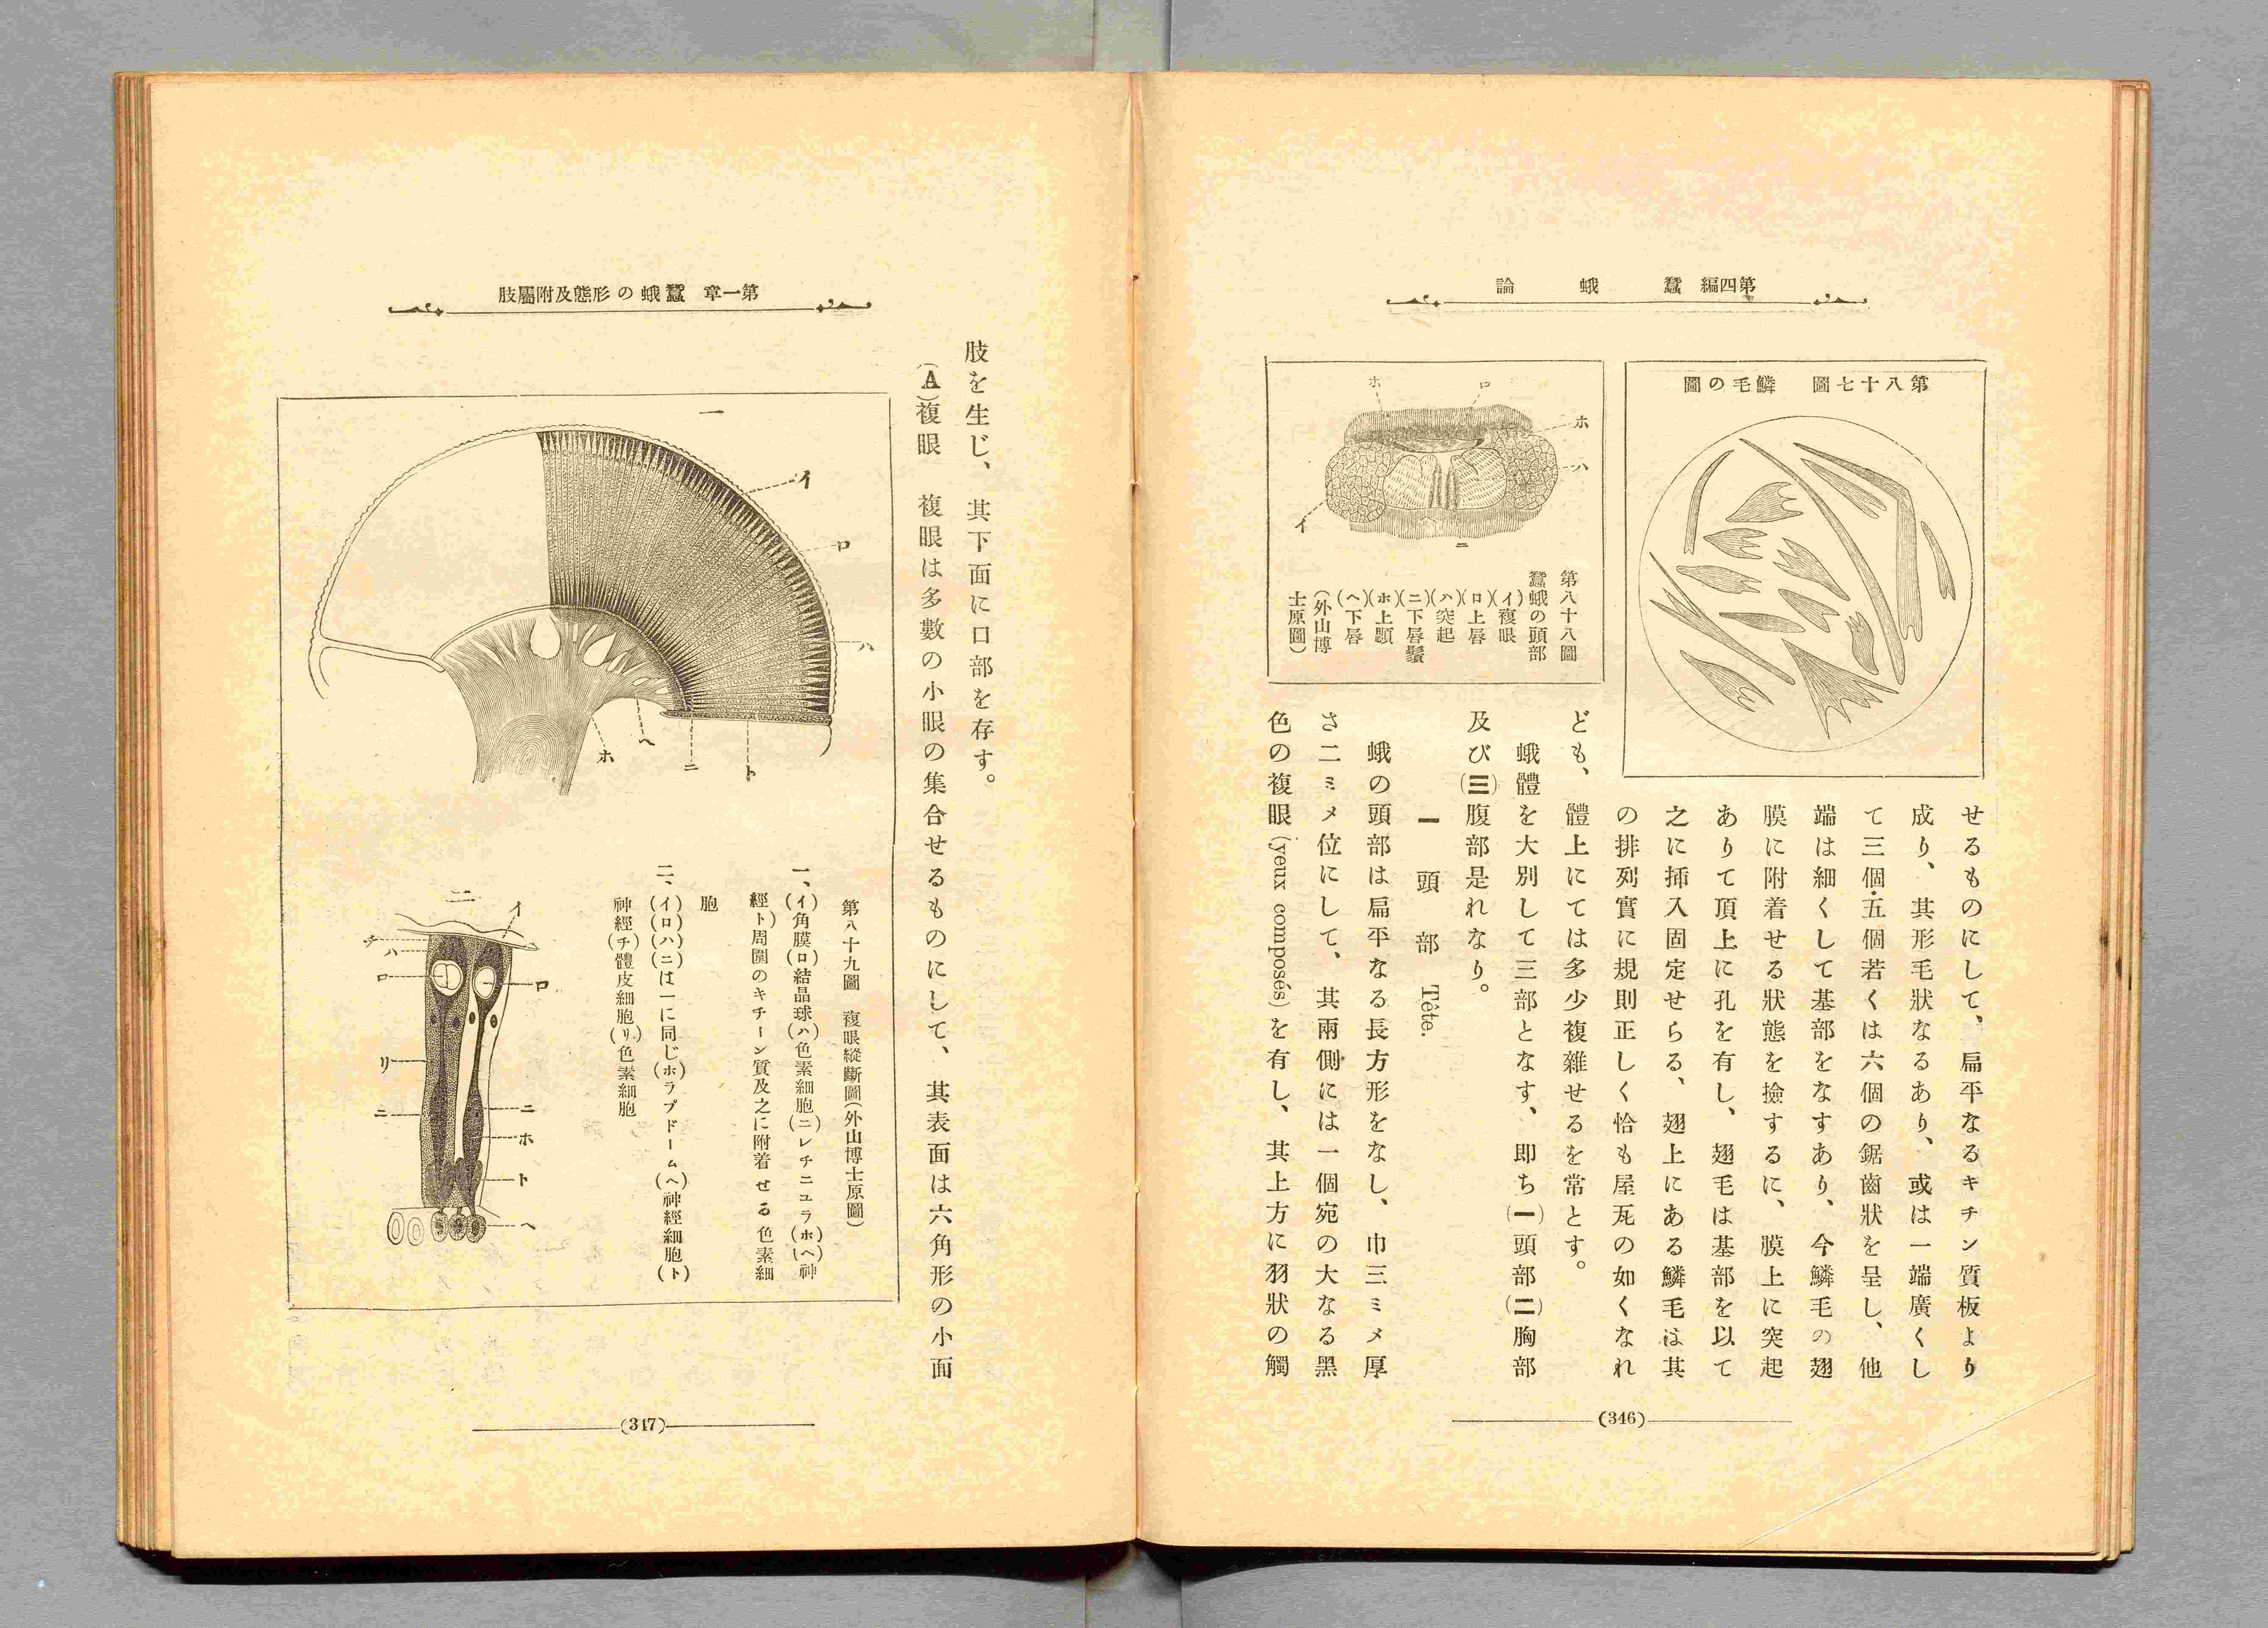 第四編　蠶　蛾　論
第八十七圖　鱗毛の圖
せるものにして、扁平なるキチン質板より
成り、其形毛狀なるあり、或は一端廣くし
て三個・五個若くは六個の鋸齒狀を呈し、他
端は細くして基部をなすあり、今鱗毛の翅
膜に附着せる狀態を撿するに、膜上に突起
ありて頂上に孔を有し、翅毛は基部を以て
之に挿入固定せらる、翅上にある鱗毛は其
の排列實に規則正しく恰も屋瓦の如くなれ
ホ
ロ
ホ
ハ
イ
ニ
第八十八圖
蠶蛾の頭部
(イ)複眼
(ロ)上唇
(ハ)突起
(ニ)下唇鬚
(ホ)上顎
(ヘ)下唇
(外山博
士原圖)
ども、體上にては多少複雜せるを常とす。
蛾體を大別して三部となす、即ち(一)頭部(二)胸部
及び(三)腹部是れなり。
一　頭部　Tête.
蛾の頭部は扁平なる長方形をなし、巾三ミメ厚
さ二ミメ位にして、其兩側には一個宛の大なる黑
色の複眼(yeux composés)を有し、其上方に羽狀の觸
(346)
第一章　蠶蛾の形態及附屬肢
肢を生じ、其下面に口部を存す。
(A)複眼　複眼は多數の小眼の集合せるものにして、其表面は六角形の小面
一
イ
ロ
ハ
ト
ニ
ヘ
ホ
第八十九圖　複眼縱斷圖(外山博士原圖)
一、(イ)角膜(ロ)結晶球(ハ)色素細胞(ニ)レチニュラ(ホ)(ヘ)神
經(ト)周圍のキチーン質及之に附着せる色素細
胞
二、(イ)(ロ)(ハ)(ニ)は一に同じ(ホ)ラブドーム(ヘ)神經細胞(ト)
神經(チ)體皮細胞(リ)色素細胞
二
イ
チ
ハ
ロ
ロ
リ
ニ
ニ
ホ
ト
ヘ
(347)